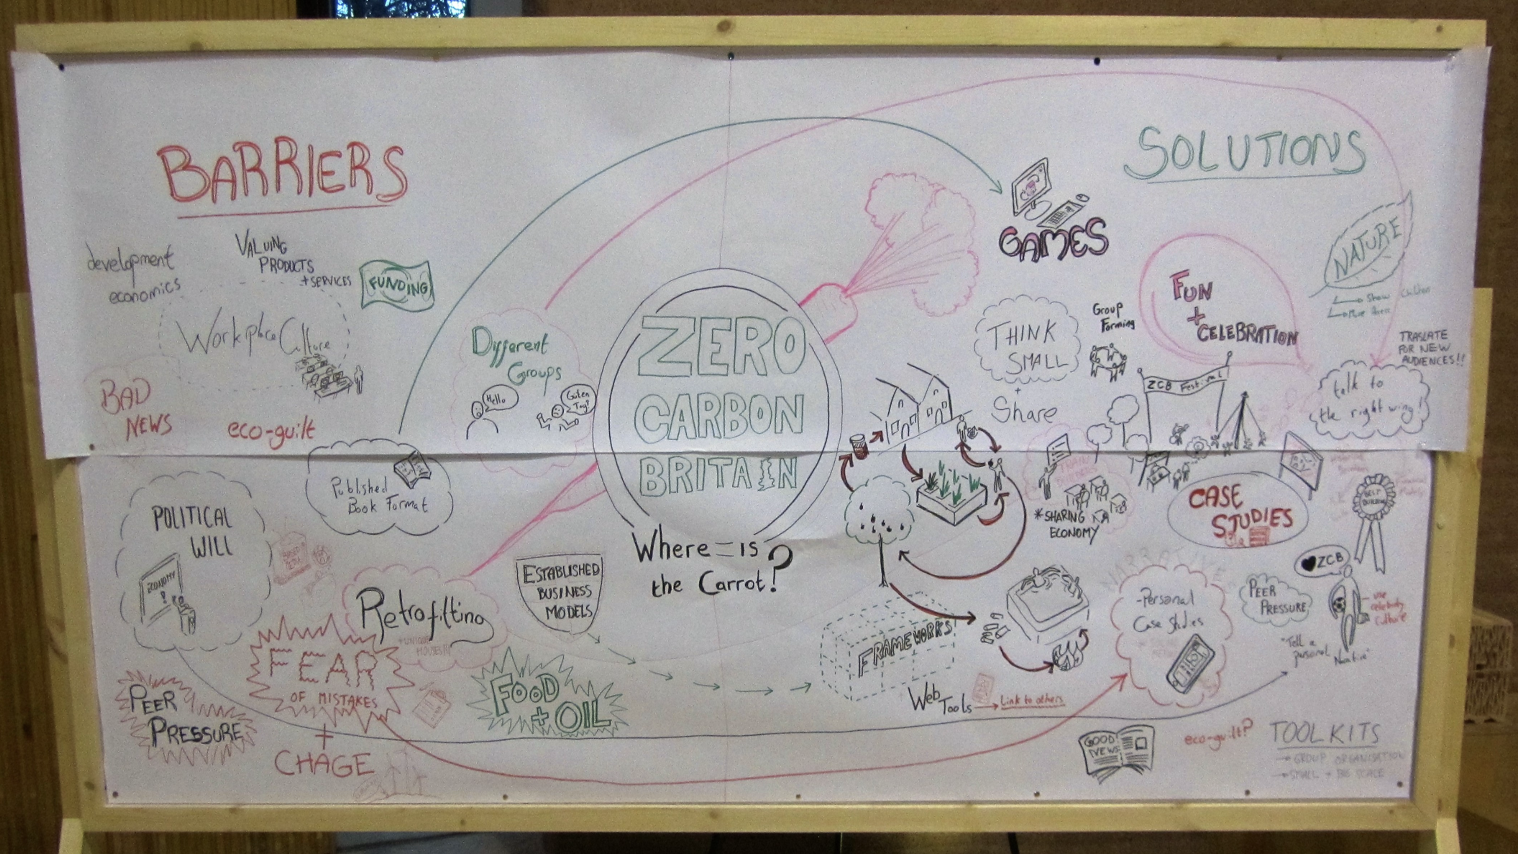 BARRIERS
SOLUTIONS
development
economics
VALUING
PRODUCTS
+ SERVICES
FUNDING
Workplace Culture
BAD
NEWS
eco-guilt
Different
Groups
Hello
Guten
Tag!
Published
Book Format
POLITICAL
WILL
ECONOMY
Retrofitting
ESTABLISHED
BUSINESS
MODELS
FEAR
OF MISTAKES
+
CHAGE
PEER
PRESSURE
FOOD
+ OIL
ZERO
CARBON
BRITAIN
Where = is
the Carrot?
GAMES
THINK
SMALL
+
Share
Group
Forming
FUN
+
CELEBRATION
NATURE
TRASLATE
FOR NEW
AUDIENCES!!
talk to
the right wing!
ZCB Festival
* SHARING
ECONOMY
CASE
STUDIES
BEST
NARRATIVE
- Personal
Case Studies
PEER
PRESSURE
ZCB
use
celebrity
culture
Tell a
personal
FRAMEWORKS
Web
Tools
Link to others
GOOD
NEWS
eco-guilt?
TOOLKITS
→ GROUP ORGANISATION
→ SMALL + BIG SCALE